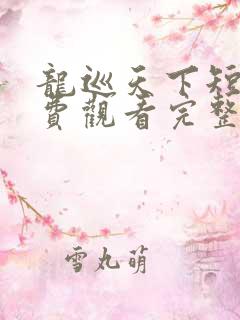 龍巡天下短
費觀看完整
雪丸萌